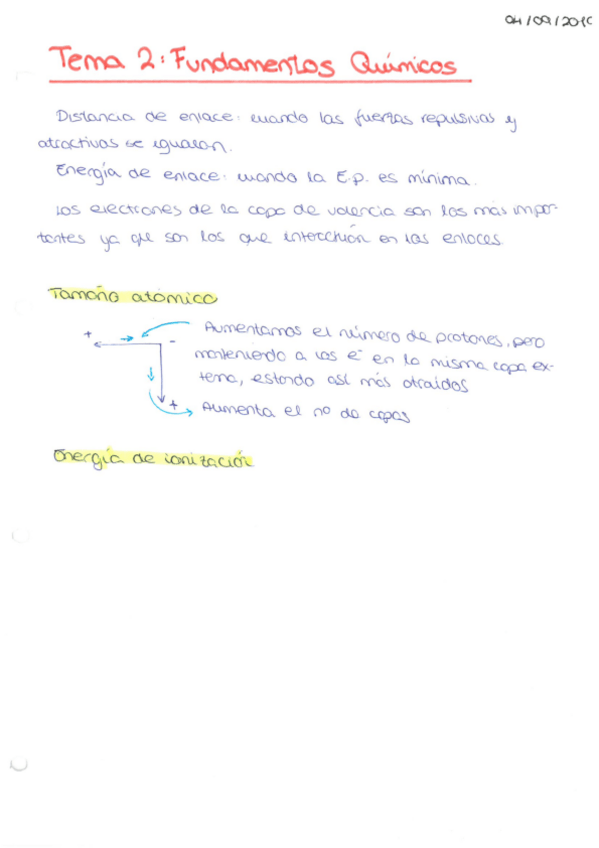 04/09/201
Tema 2: Fundamentos Químicos
Distancia de enlace: cuando las fuerzas repulsivas y
atractivas se igualan.
Energía de enlace: cuando la E.p. es mínima.
Los electrones de la capa de valencia son los más impor-
tantes ya que son los que en los enlaces
Tamaño atómico
+ - Aumentamos el número de protones, pero
manteniendo a los e⁻ en la misma capa ex-
terna, estando así más atraídos
+ Aumenta el nº de capas
Energía de ionización